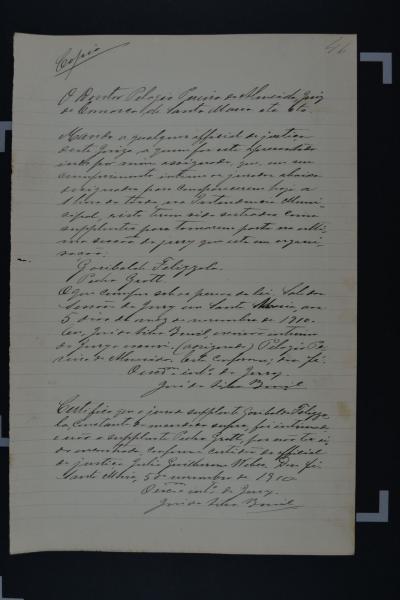 46
Copia
O Doutor Pelagio Pereira de Almeida, Juiz
de Comarca de Santa Maria etc etc.
Mando a qualquer official de justiça
deste Juizo, a quem for este apresentado
indo por mim assignado, que, em seu
cumprimento intime os jurados abaixo
designados para comparecerem hoje a
hora da tarde na Intendencia Muni-
cipal, visto terem sido sorteados como
supplentes para tomarem parte na ulti-
ma sessão do jury que está em organi-
sação:
Garibaldi Felizzola
Pedro Grott
O que cumpra sob as penas da lei. Sala das
Sessões do Jury em Santa Maria, aos
5 dias do mez de novembro de 1910.
Eu, José da Silva Brasil, escrivão interino
do Jury o escrevi. (assignado) Pelagio Pe-
reira de Almeida. Está conforme; dou fé.
O escrivão intº do Jury.
José da Silva Brasil
Certifico que o jurado supplente Garibaldi Felizzo-
la, constante do mandado supra, foi intimado
e não o supplente Pedro Grott, por não ter si-
do encontrado, conforme certidão do official
de justiça Julio Guilherme Weber. Dou fé.
Santa Maria, 5 de novembro de 1910
O escrivão intº do Jury.
José da Silva Brasil